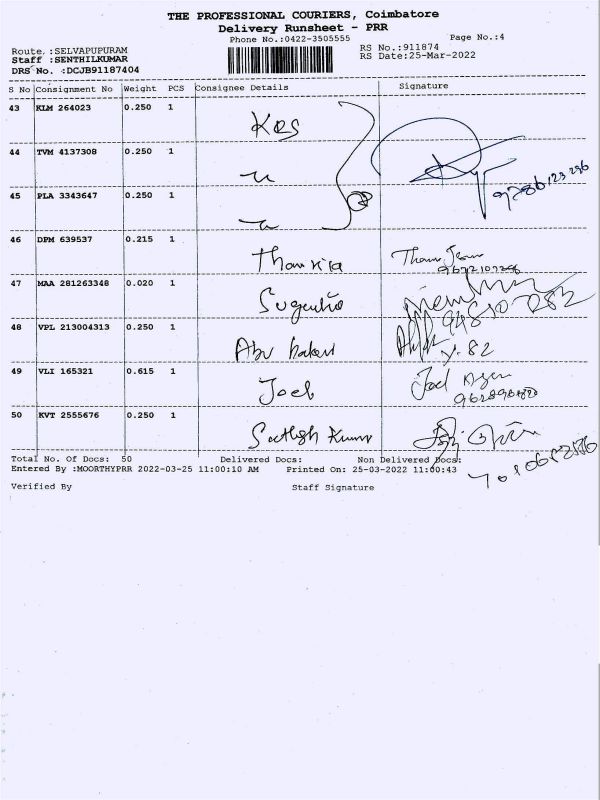 THE PROFESSIONAL COURIERS, Coimbatore
Delivery Runsheet - PRR
Phone No.:0422-3505555
Page No.:4
Route :SELVAPUPURAM
RS No.:911874
Staff :SENTHILKUMAR
RS Date:25-Mar-2022
DRS No. :DCJB91187404
S No Consignment No Weight PCS Consignee Details Signature
43 KLM 264023 0.250 1 KRS
44 TVM 4137308 0.250 1
45 PLA 3343647 0.250 1
46 DPM 639537 0.215 1
47 MAA 281263348 0.020 1
48 VPL 213004313 0.250 1 Abu
49 VLI 165321 0.615 1 Joel Joel
50 KVT 2555676 0.250 1 Sathish Kumar
Total No. Of Docs: 50 Delivered Docs: Non Delivered Docs:
Entered By :MOORTHYPRR 2022-03-25 11:00:10 AM Printed On: 25-03-2022 11:00:43
Verified By Staff Signature